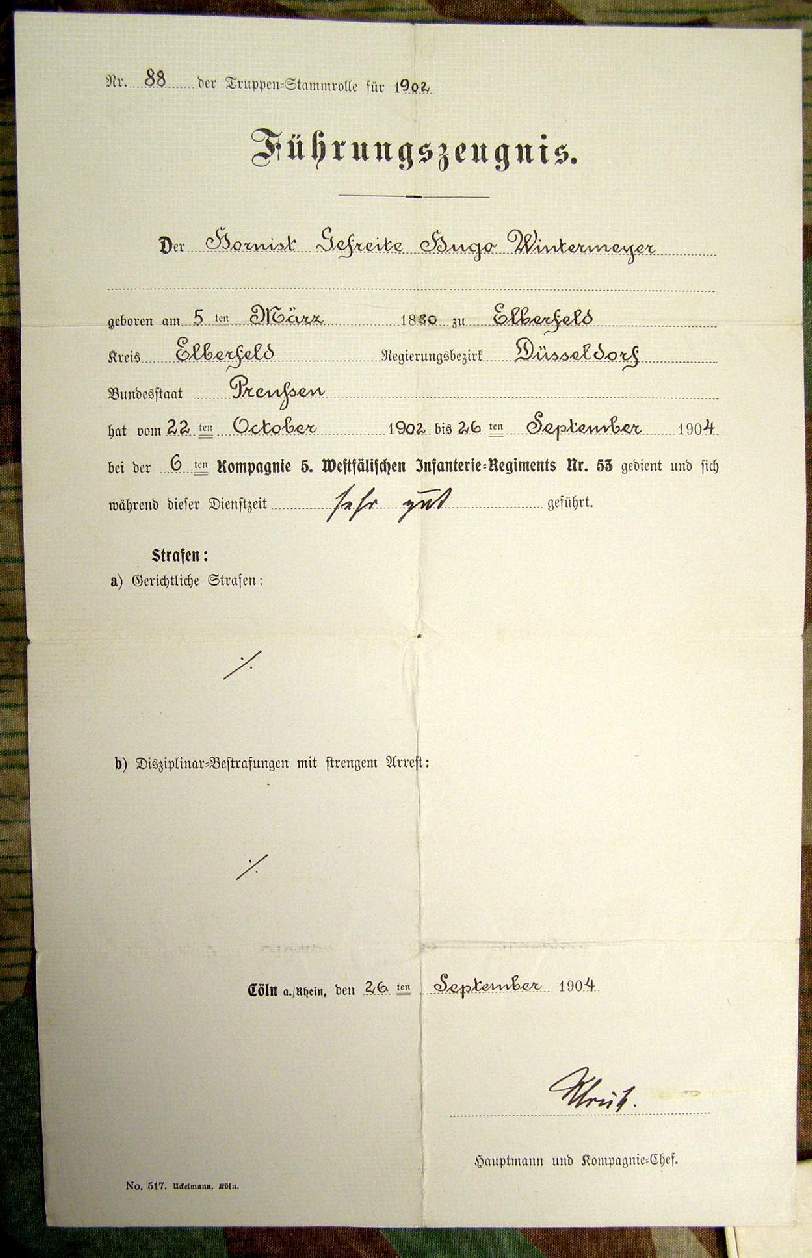 Nr. 88 der Truppen-Stammrolle für 1902
Führungszeugnis.
Der Hornist Gefreite Hugo Wintermeyer
geboren am 5 ten März 1880 zu Elberfeld
Kreis Elberfeld Regierungsbezirk Düsseldorf
Bundesstaat Preußen
hat vom 22 ten October 1902 bis 26 ten September 1904
bei der 6 ten Kompagnie 5. Westfälischen Infanterie-Regiments Nr. 53 gedient und sich
während dieser Dienstzeit sehr gut geführt.
Strafen:
a) Gerichtliche Strafen:
./.
b) Disziplinar-Bestrafungen mit strengem Arrest:
./.
Cöln a./Rhein, den 26 ten September 1904
Hauptmann und Kompagnie-Chef.
No. 517. Uckelmann, Köln.